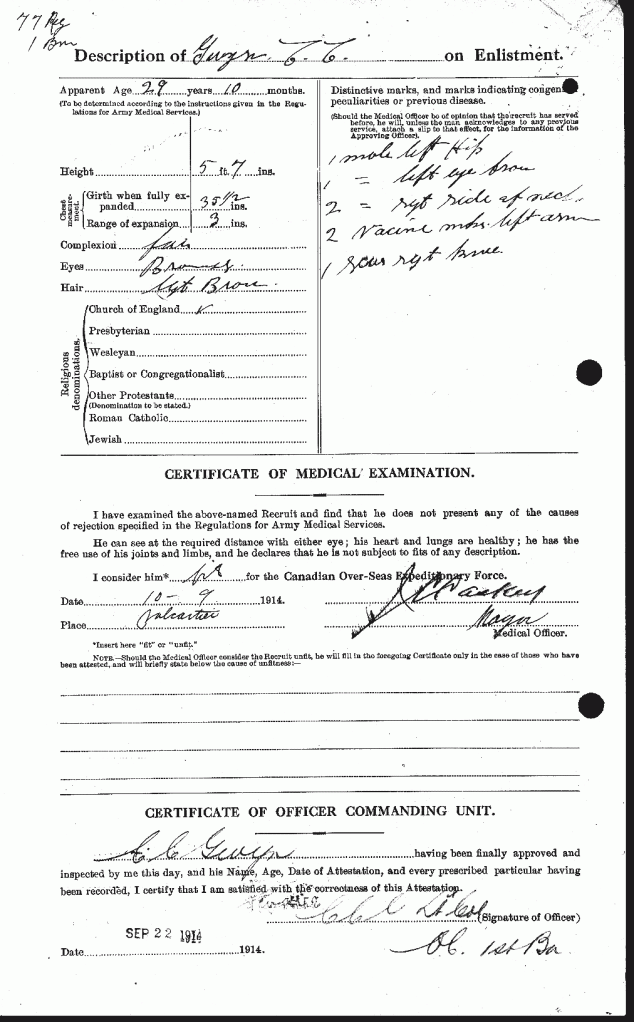 77 Reg
1 Bn
Description of Gwyn C. C. on Enlistment.
Apparent Age 29 years 10 months.
(To be determined according to the instructions given in the Regulations for Army Medical Services.)
Height 5 ft. 7 ins.
Chest measurement.
Girth when fully expanded 35 1/2 ins.
Range of expansion 3 ins.
Complexion fair
Eyes Brown
Hair Lgt Brow
Religious denominations.
Church of England
Presbyterian
Wesleyan
Baptist or Congregationalist
Other Protestants
(Denomination to be stated.)
Roman Catholic
Jewish
Distinctive marks, and marks indicating congenital peculiarities or previous disease.
(Should the Medical Officer be of opinion that the recruit has served before, he will, unless the man acknowledges to any previous service, attach a slip to that effect, for the information of the Approving Officer).
1 mole left Hip
1 = left eye brow
2 = rgt side of neck
2 Vacine mks left arm
1 scar rgt knee.
CERTIFICATE OF MEDICAL EXAMINATION.
I have examined the above-named Recruit and find that he does not present any of the causes
of rejection specified in the Regulations for Army Medical Services.
He can see at the required distance with either eye; his heart and lungs are healthy; he has the
free use of his joints and limbs, and he declares that he is not subject to fits of any description.
I consider him* fit for the Canadian Over-Seas Expeditionary Force.
Date 10-9 1914.
Place Valcartier
Major
Medical Officer.
*Insert here "fit" or "unfit."
NOTE.—Should the Medical Officer consider the Recruit unfit, he will fill in the foregoing Certificate only in the case of those who have
been attested, and will briefly state below the cause of unfitness:—
CERTIFICATE OF OFFICER COMMANDING UNIT.
C C Gwyn having been finally approved and
inspected by me this day, and his Name, Age, Date of Attestation, and every prescribed particular having
been recorded, I certify that I am satisfied with the correctness of this Attestation.
Lt Col (Signature of Officer)
SEP 22 1914
Date 1914.
OC. 1st Bn